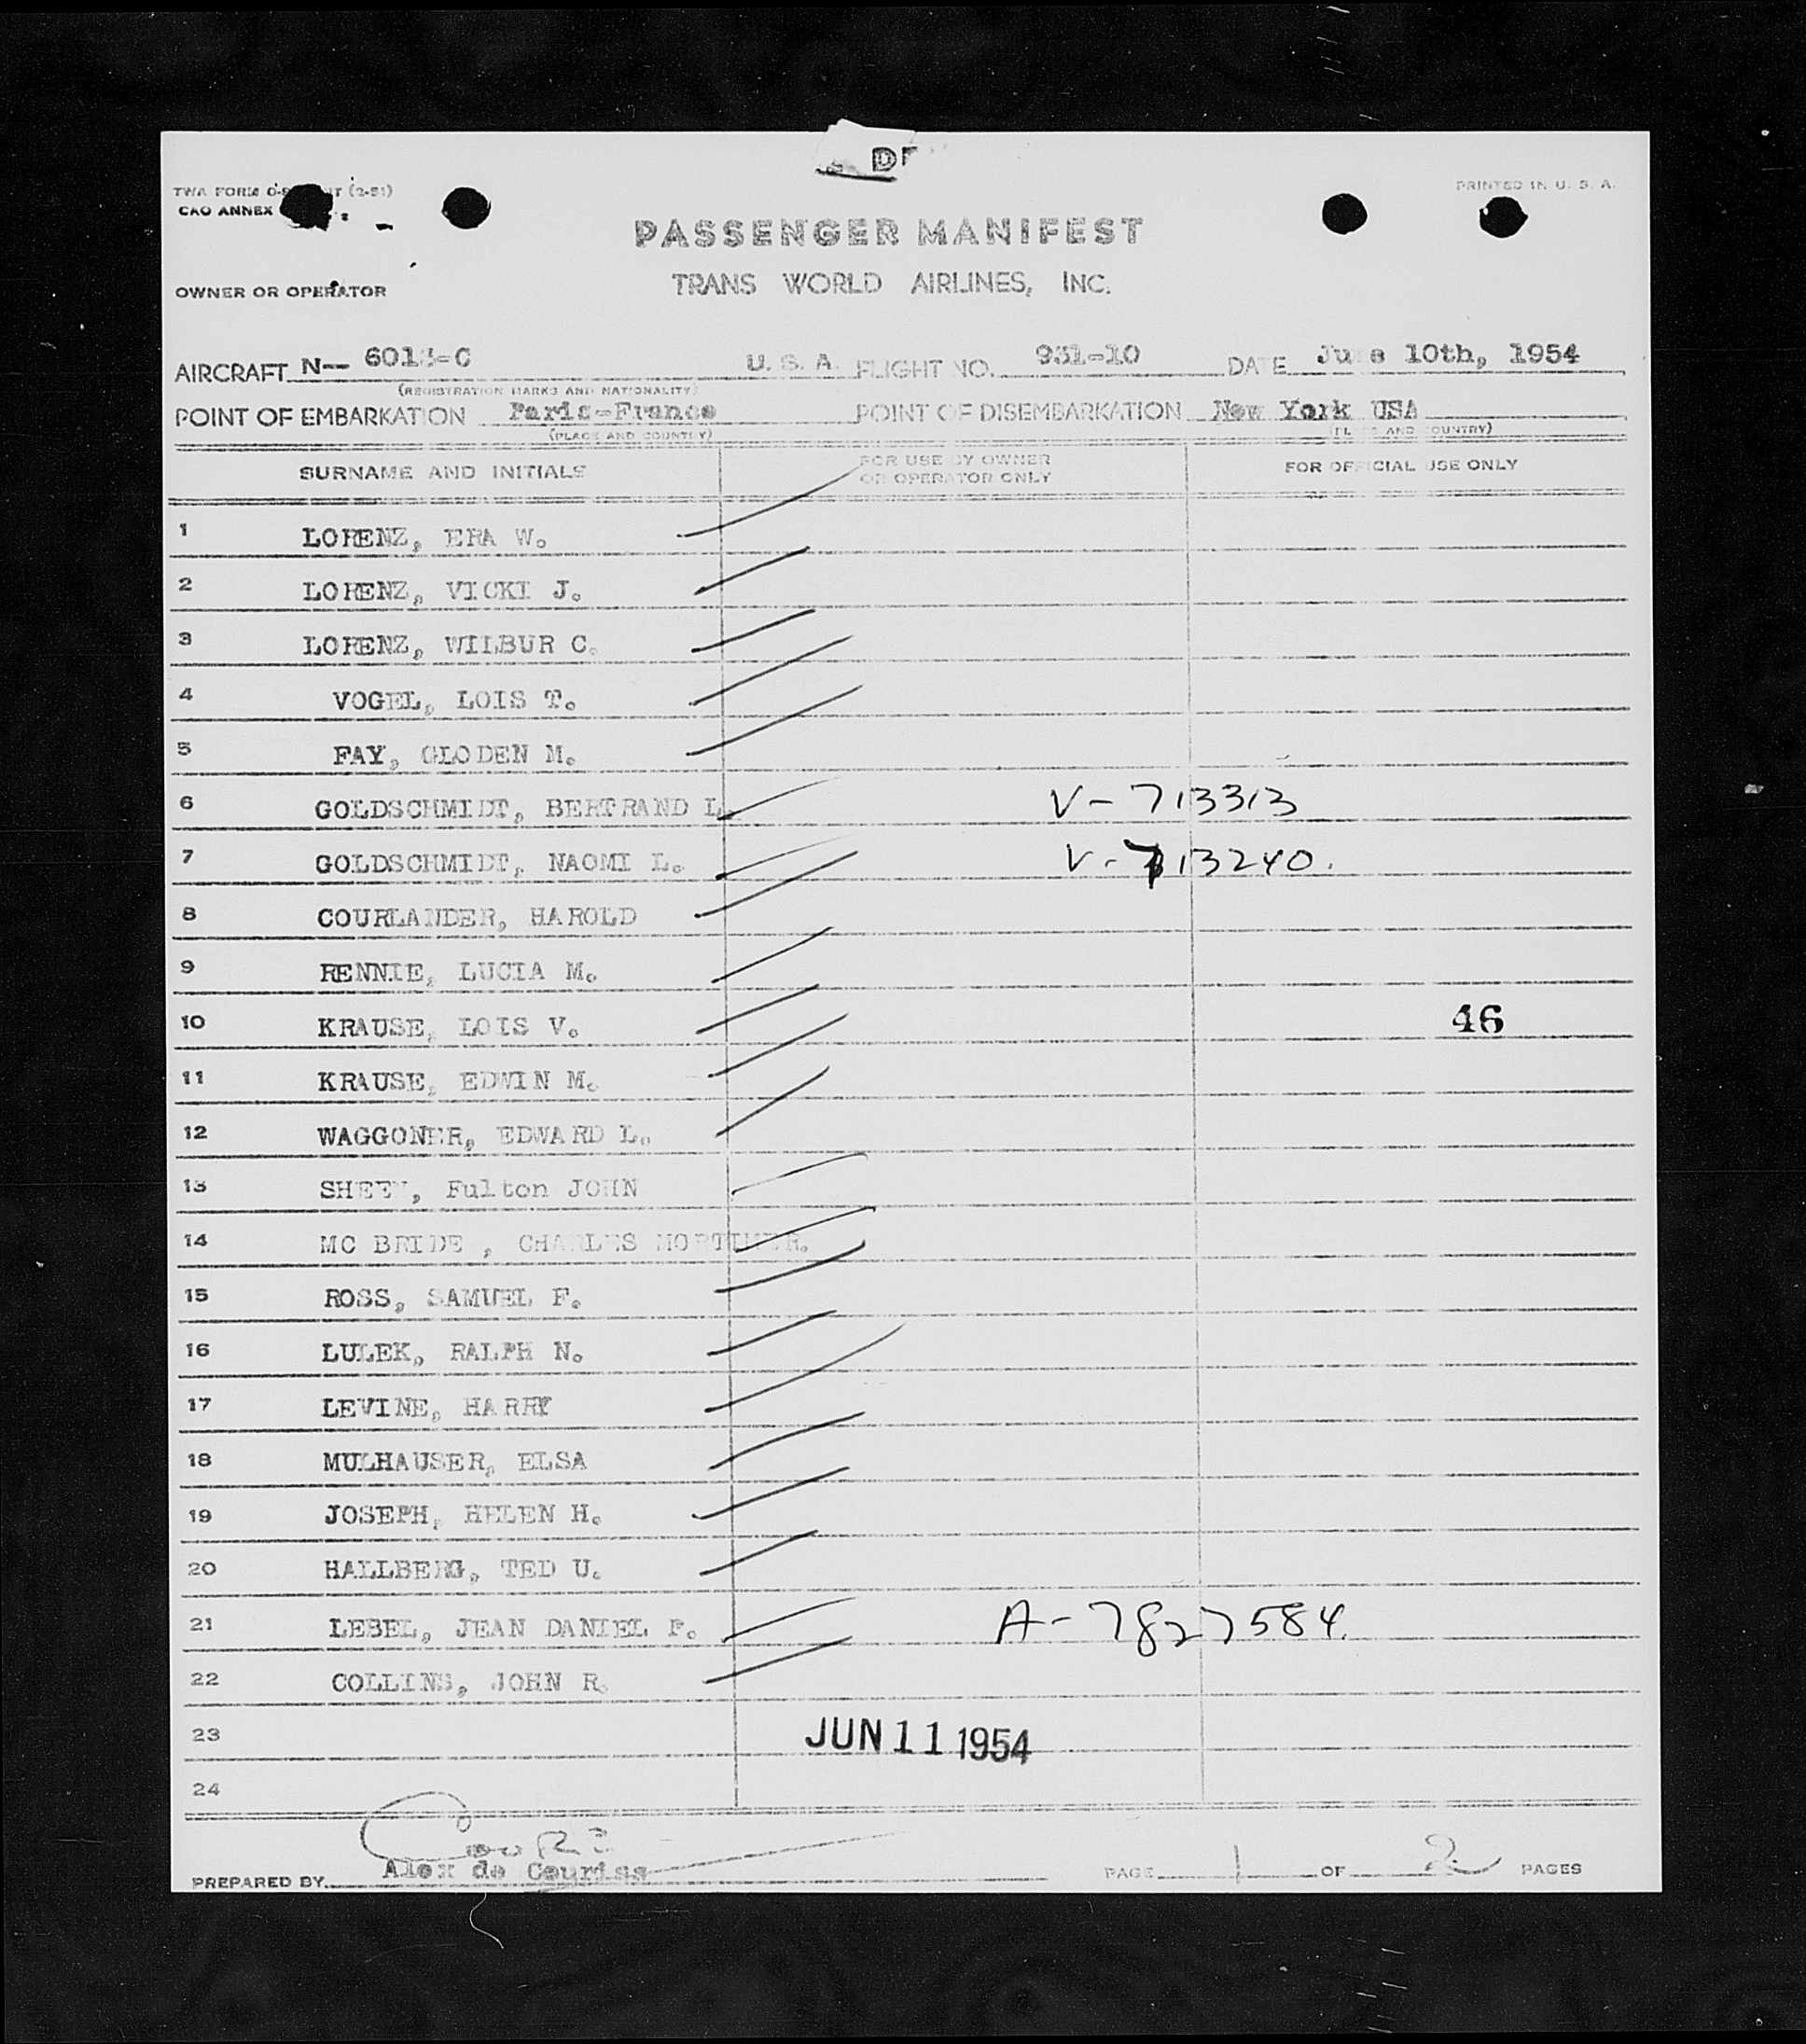 DE
TWA FORM (2-51) PRINTED IN U. S. A.
CAO ANNEX
PASSENGER MANIFEST
OWNER OR OPERATOR TRANS WORLD AIRLINES, INC.
AIRCRAFT N— 6013-C U. S. A. FLIGHT NO. 931-10 DATE June 10th, 1954
(REGISTRATION MARKS AND NATIONALITY)
POINT OF EMBARKATION Paris-France POINT OF DISEMBARKATION New York USA
(PLACE AND COUNTRY) (PLACE AND COUNTRY)
SURNAME AND INITIALS FOR USE BY OWNER OR OPERATOR ONLY FOR OFFICIAL USE ONLY
1 LORENZ, ERA W.
2 LORENZ, VICKI J.
3 LORENZ, WILBUR C.
4 VOGEL, LOIS T.
5 FAY, GLODEN M.
6 GOLDSCHMIDT, BERTRAND L. V-713313
7 GOLDSCHMIDT, NAOMI L. V-713240.
8 COURLANDER, HAROLD
9 RENNIE, LUCIA M.
10 KRAUSE, LOIS V. 46
11 KRAUSE, EDWIN M.
12 WAGGONER, EDWARD L.
13 SHEEN, Fulton JOHN
14 MC BRIDE , CHARLES MORTIMER.
15 ROSS, SAMUEL F.
16 LULEK, RALPH N.
17 LEVINE, HARRY
18 MULHAUSER, ELSA
19 JOSEPH, HELEN H.
20 HALLBERG, TED U.
21 LEBEL, JEAN DANIEL P. A-7827584.
22 COLLINS, JOHN R.
23 JUN 11 1954
24
PREPARED BY Alex de Couriss PAGE 1 OF 2 PAGES